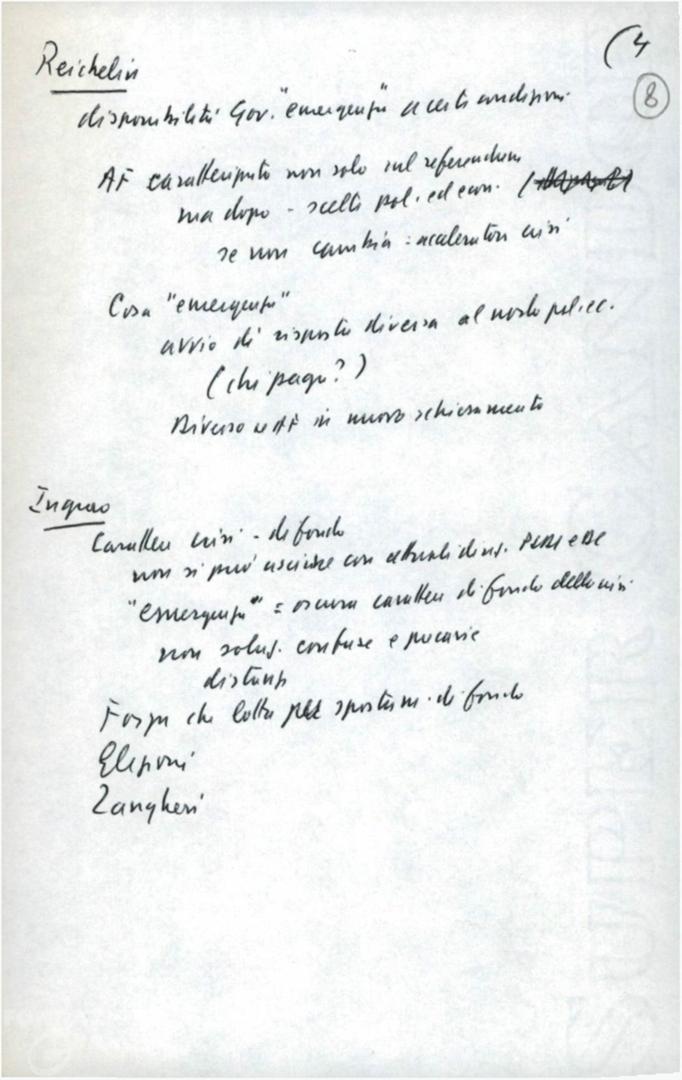 (4
8
Reichelin
disponibilità Gov. "emergenza" a certe condizioni
AF caratterizzato non solo sul referendum
ma dopo - scelte pol. ed econ. (
se non cambia: acceleratori crisi
Cosa "emergenza"
avvio di risposta diversa al nostro pol. ec.
(chi paga?)
Diverso AF in nuovo schieramento
Ingrao
Carattere crisi - di fondo
non si può uscirne con attuali PCI e DC
"emergenza" = oscura carattere di fondo della crisi
non soluz. confuse e precarie
distanz
Forza che lotta per spostam. di fondo
Elezioni
Zangheri